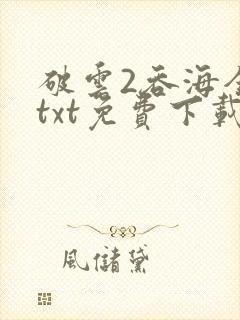 破雲2吞海全
txt免費下載
風儲黛